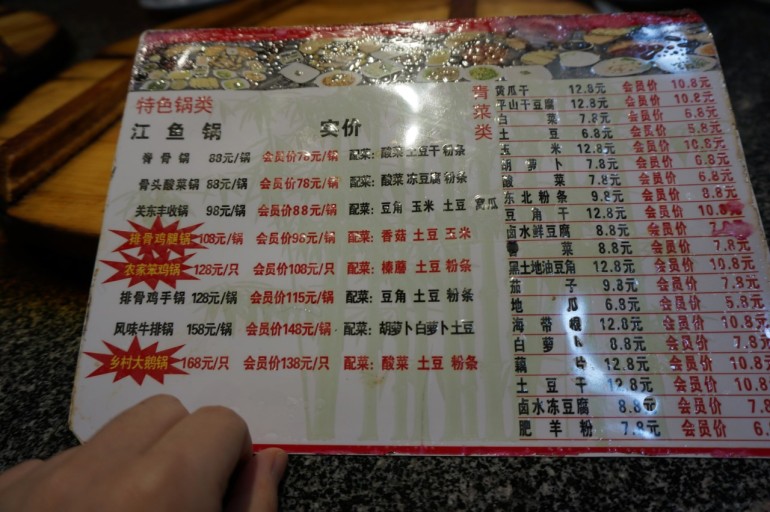 特色锅类
江鱼锅 实价
脊骨锅 88元/锅 会员价78元/锅 配菜：酸菜 土豆干 粉条
骨头酸菜锅 88元/锅 会员价78元/锅 配菜：酸菜 冻豆腐 粉条
关东丰收锅 98元/锅 会员价88元/锅 配菜：豆角 玉米 土豆 窝瓜
排骨鸡腿锅 108元/锅 会员价98元/锅 配菜：香菇 土豆 玉米
农家笨鸡锅 128元/只 会员价108元/只 配菜：榛蘑 土豆 粉条
排骨鸡手锅 128元/锅 会员价115元/锅 配菜：豆角 土豆 粉条
风味牛排锅 158元/锅 会员价148元/锅 配菜：胡萝卜 白萝卜 土豆
乡村大鹅锅 168元/只 会员价138元/只 配菜：酸菜 土豆 粉条
青菜类
黄瓜干 12.8元 会员价 10.8元
平山干豆腐 12.8元 会员价 10.8元
白菜 7.8元 会员价 5.8元
土豆 6.8元 会员价 5.8元
玉米 12.8元 会员价 10.8元
胡萝卜 7.8元 会员价 6.8元
酸菜 7.8元 会员价 6.8元
东北粉条 9.8元 会员价 8.8元
豆角干 12.8元 会员价 10.8元
卤水鲜豆腐 8.8元 会员价
菜 8.8元 会员价 7.8元
黑土地油豆角 12.8元 会员价 10.8元
茄子 9.8元 会员价 7.8元
地瓜 6.8元 会员价 5.8元
海带 12.8元 会员价 10.8元
白萝卜 8.8元 会员价 7.8
藕片 12.8元 会员价 10.8
土豆干 12.8元 会员价 10.8
卤水冻豆腐 8.8元 会员价 7.8
肥羊粉 7.8元 会员价 6.